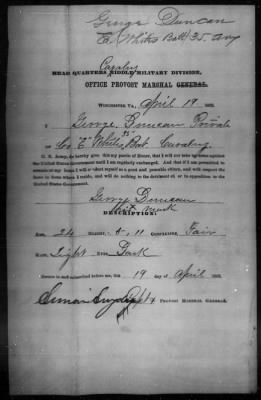 George Duncan
E. Whites Batt 35. Cavy
Cavalry
HEAD QUARTERS MIDDLE MILITARY DIVISION,
OFFICE PROVOST MARSHAL GENERAL.
WINCHESTER VA, April 19 1865.
I, George Duncan Private
35
Co "E" Whites Bat. Cavalry
C. S. Army, do hereby give this my parole of Honor, that I will not take up arms against
the United States Government until I am regularly exchanged. And that if I am permitted to
remain at my home I will conduct myself as a good and peaceable citizen, and will respect the
laws in force where I reside, and will do nothing to the detriment of, or in opposition to the
United States Government.
George Duncan
his X mark
DESCRIPTION:
AGE, 24 HEIGHT, 5.11 COMPLEXION, Fair
HAIR, Light EYES, Dark
Sworn to and subscribed before me, this 19 day of April 1865.
Capt & PROVOST MARSHAL GENERAL.